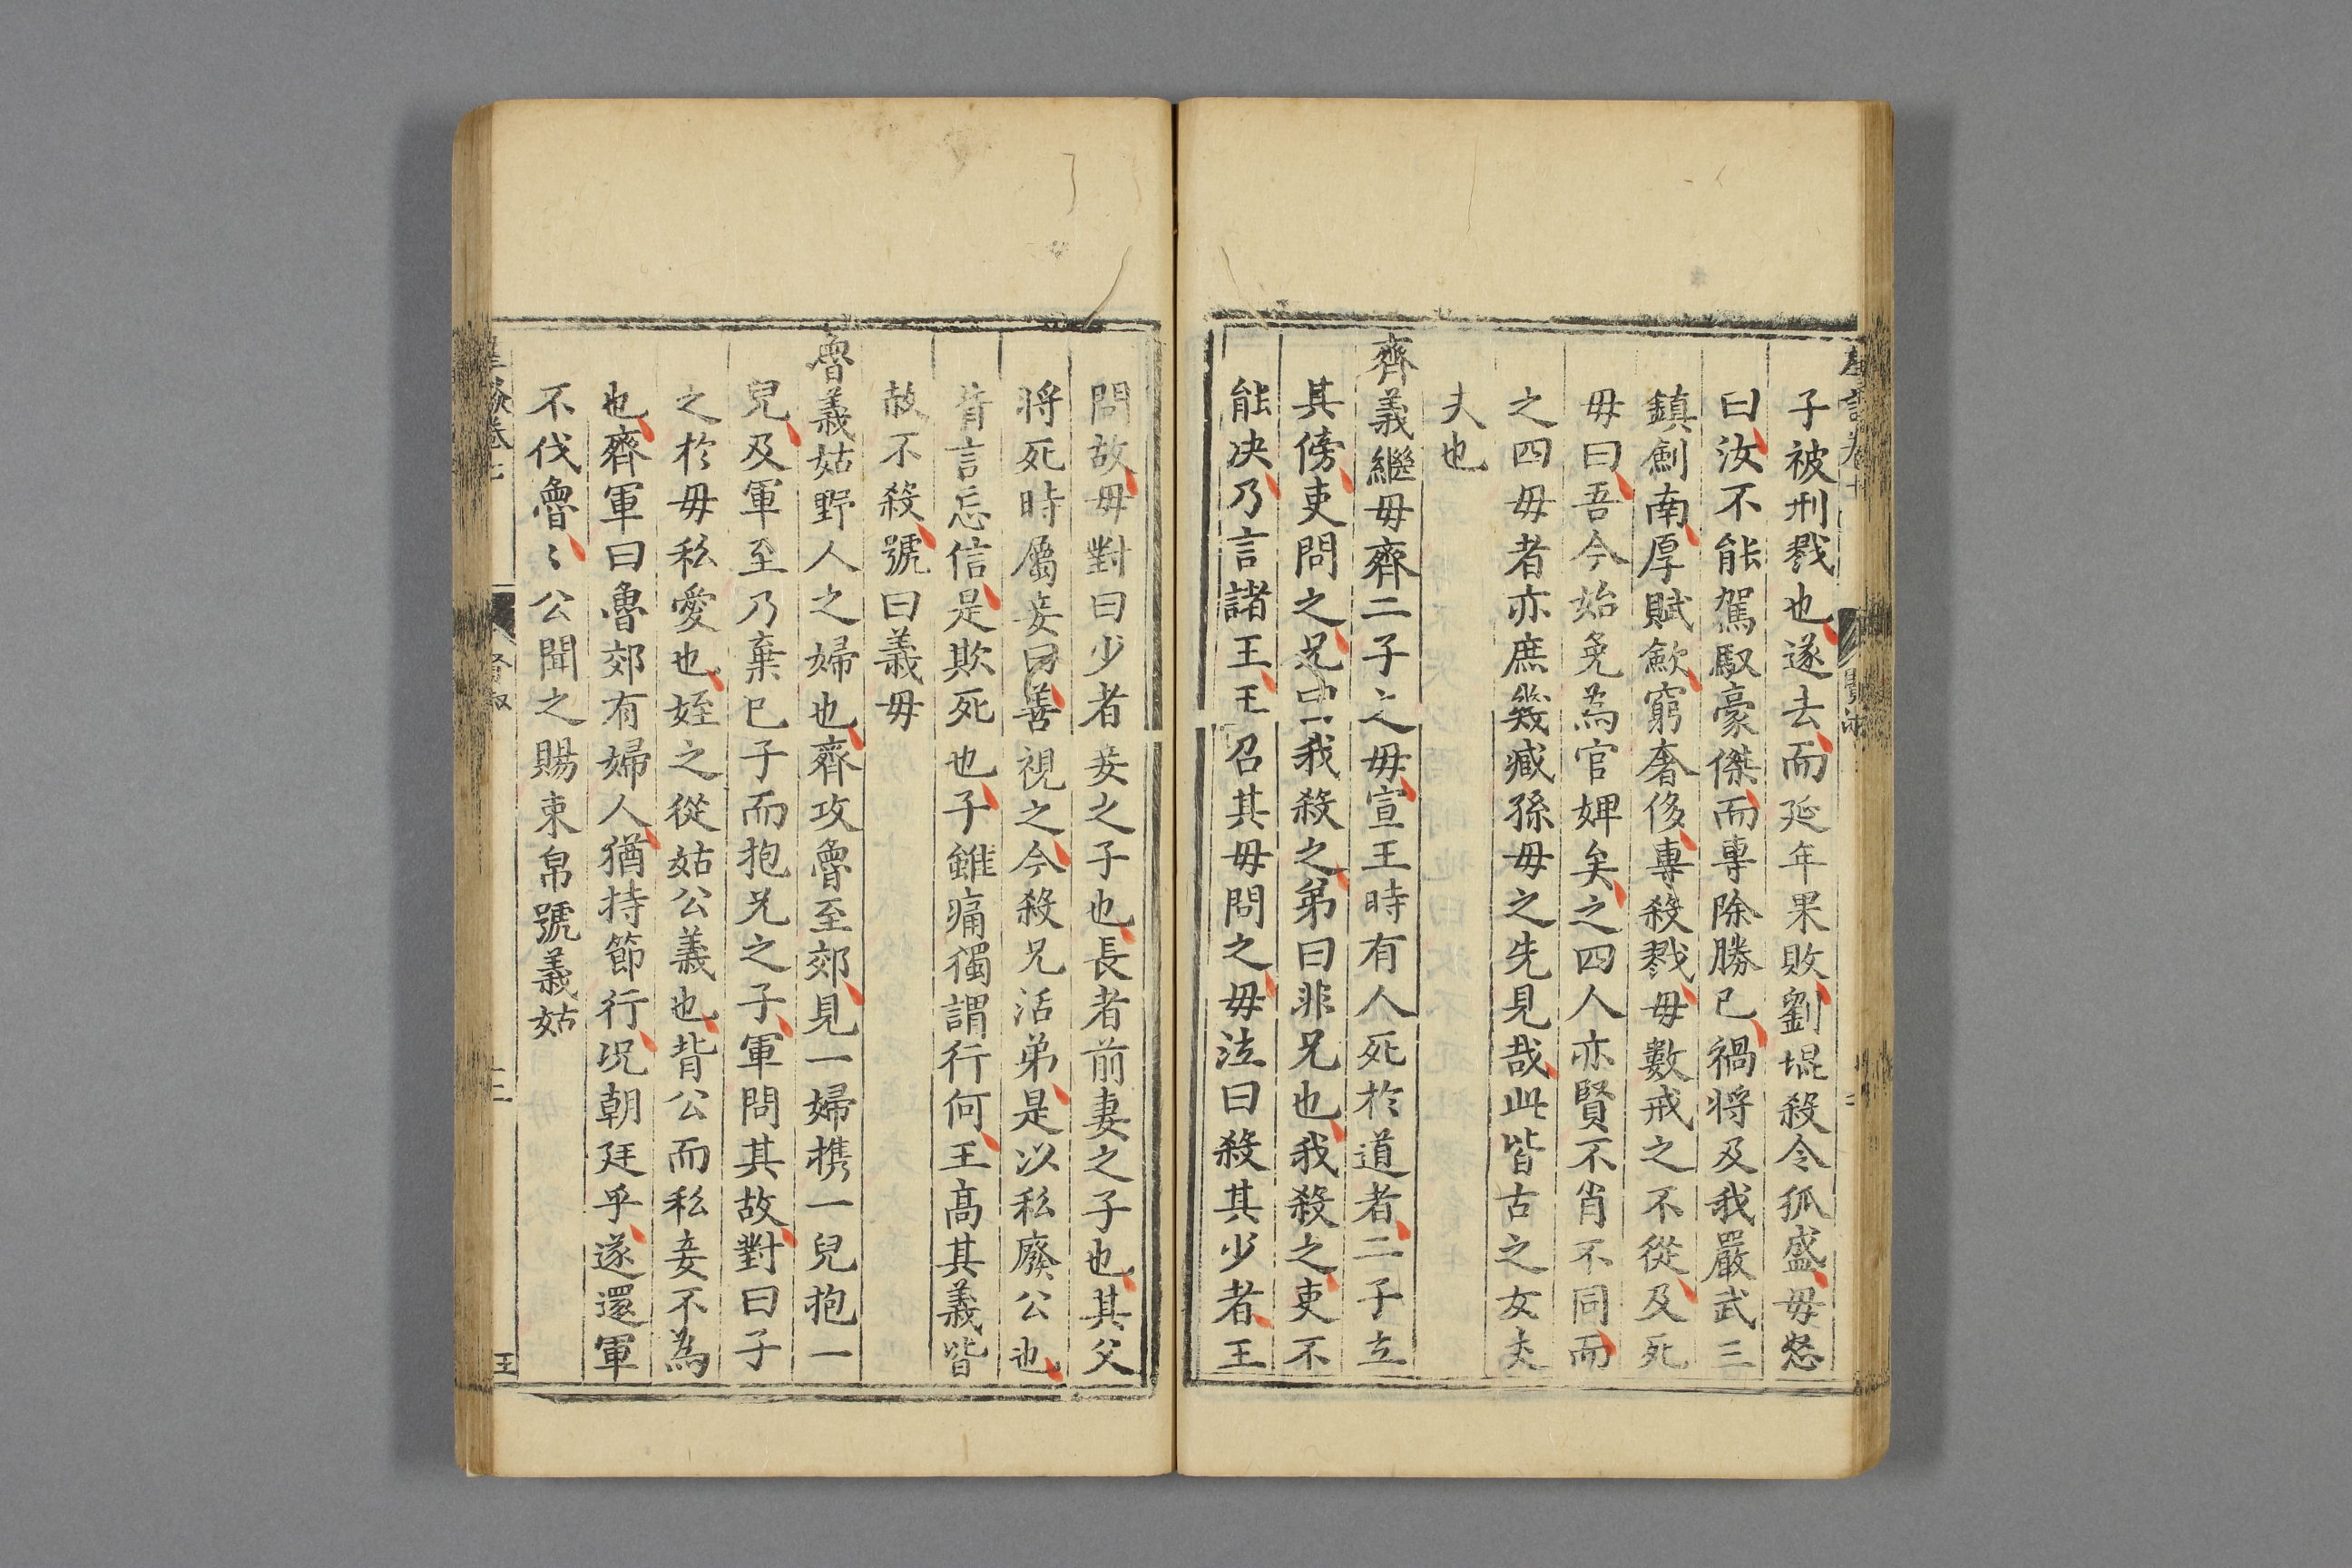 子被刑戮也遂去而延年果敗劉琨殺令狐盛母怒
曰汝不能駕馭豪傑而專除勝己禍將及我嚴武三
鎮劍南厚賦歛窮奢侈專殺戮母數戒之不從及死
毋曰吾今始免為官婢矣之四人亦賢不肖不同而
之四毋者亦庶幾臧孫毋之先見哉此皆古之女丈
夫也
齊義繼毋齊二子之毋宣王時有人死於道者二子立
其傍吏問之兄曰我殺之弟曰非兄也我殺之吏不
能决乃言諸王王召其毋問之毋泣曰殺其少者王
問故毋對曰少者妾之子也長者前妻之子也其父
將死時屬妾曰善視之今殺兄活弟是以私廢公也
背言忘信是欺死也子雖痛獨謂行何王高其義皆
故不殺號曰義毋
魯義姑野人之婦也齊攻魯至郊見一婦携一兒抱一
兒及軍至乃棄己子而抱兄之子軍問其故對曰子
之於毋私愛也姪之從姑公義也背公而私妾不為
也齊軍曰魯郊有婦人猶持節行况朝廷乎遂還軍
不伐魯〻公聞之賜束帛號義姑